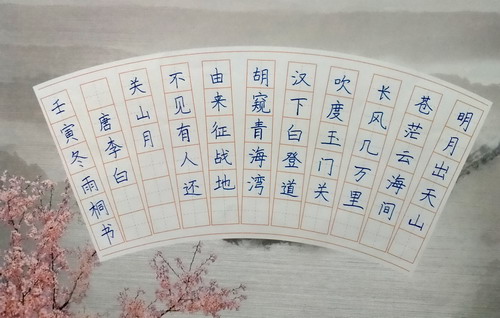 明月出天山
苍茫云海间
长风几万里
吹度玉门关
汉下白登道
胡窥青海湾
由来征战地
不见有人还
关山月
唐李白
壬寅冬雨桐书